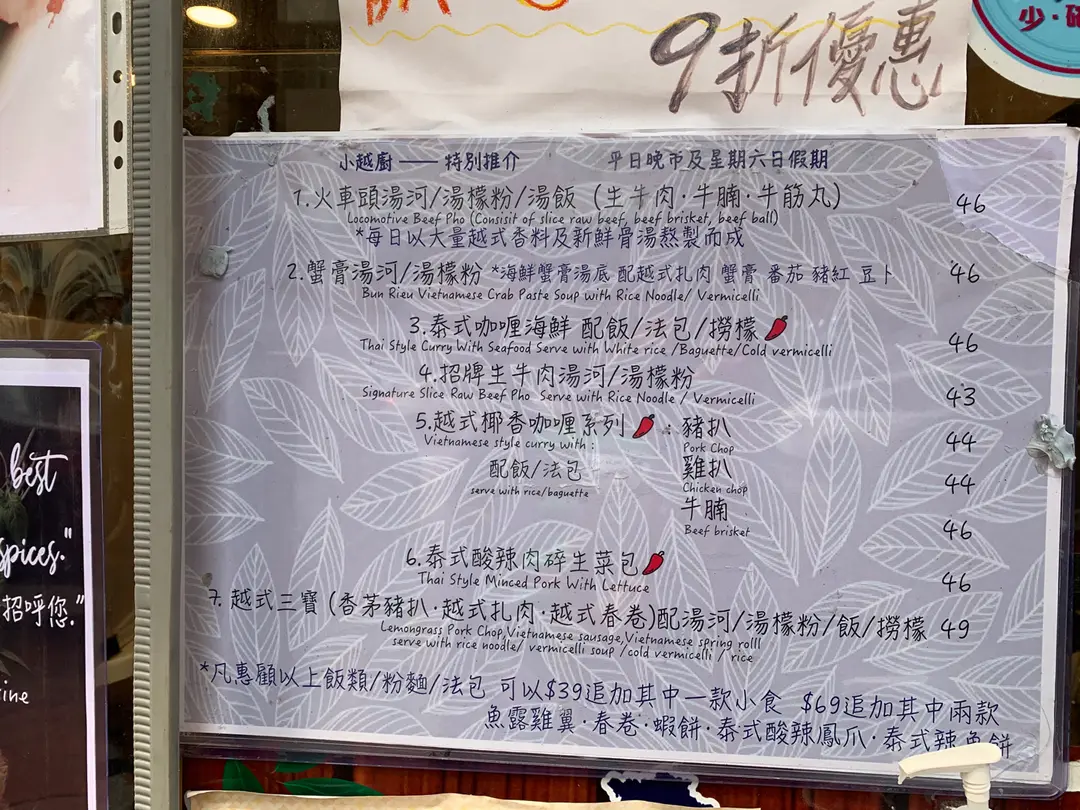 9折優惠
少·
小越廚 —— 特別推介 平日晚市及星期六日假期
1.火車頭湯河/湯檬粉/湯飯 (生牛肉·牛腩·牛筋丸) 46
Locomotive Beef Pho (Consisit of slice raw beef, beef brisket, beef ball)
*每日以大量越式香料及新鮮骨湯熬製而成
2.蟹膏湯河/湯檬粉 *海鮮蟹膏湯底 配越式扎肉 蟹膏 番茄 豬紅 豆卜 46
Bun Rieu Vietnamese Crab Paste Soup with Rice Noodle/ Vermicelli
3.泰式咖喱海鮮 配飯/法包/撈檬 46
Thai Style Curry With Seafood Serve with White rice /Baguette/Cold vermicelli
4.招牌生牛肉湯河/湯檬粉 43
Signature Slice Raw Beef Pho Serve with Rice Noodle / Vermicelli
5.越式椰香咖喱系列 : 豬扒 44
Vietnamese style curry with : Pork Chop
配飯/法包 雞扒 44
serve with rice/baguette Chicken chop
牛腩 46
Beef brisket
6.泰式酸辣肉碎生菜包 46
Thai Style Minced Pork With Lettuce
7. 越式三寶 (香茅豬扒·越式扎肉·越式春卷)配湯河/湯檬粉/飯/撈檬 49
Lemongrass Pork Chop,Vietnamese sausage,Vietnamese spring rolll
serve with rice noodle/ vermicelli soup /cold vermicelli / rice
*凡惠顧以上飯類/粉麵/法包 可以$39追加其中一款小食 $69追加其中兩款
魚露雞翼·春卷·蝦餅·泰式酸辣鳳爪·泰式辣魚餅
best
spices."
招呼您."
ine